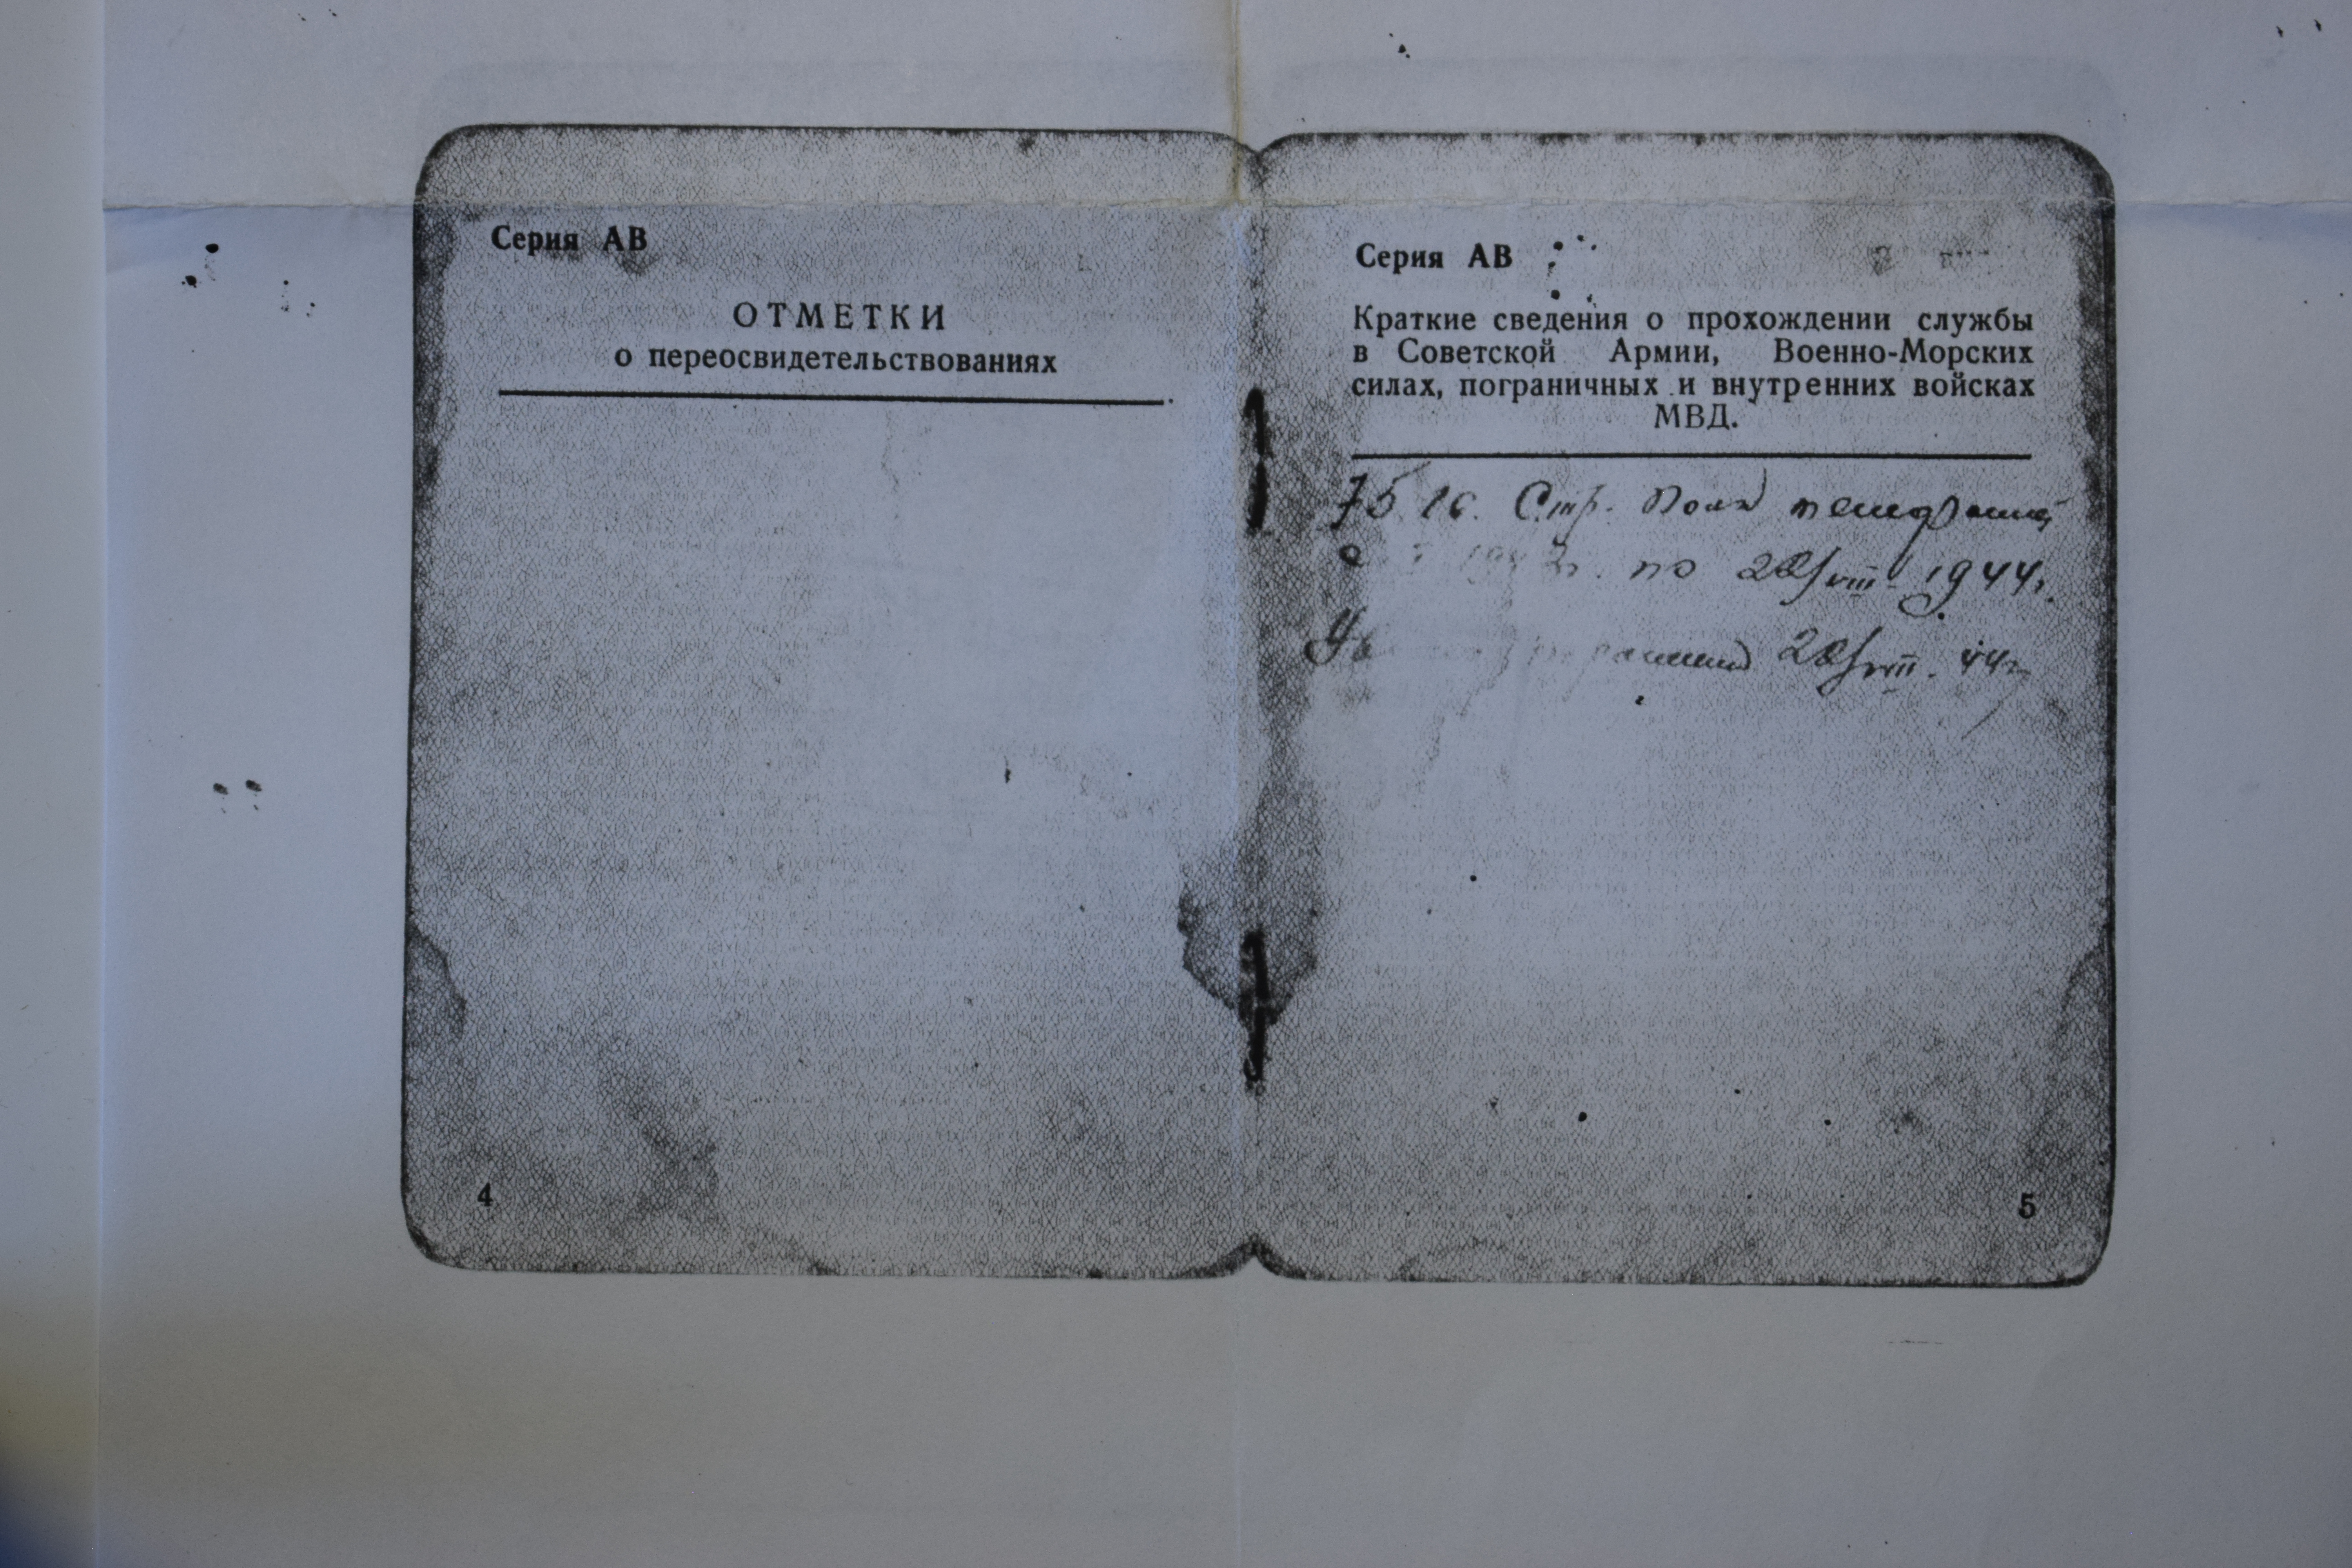 Серия АВ
ОТМЕТКИ
о переосвидетельствованиях
4
Серия АВ
Краткие сведения о прохождении службы
в Советской Армии, Военно-Морских
силах, пограничных и внутренних войсках
МВД.
Стр. Полк
по 28/VIII 1944г.
28/VIII. 44г
5